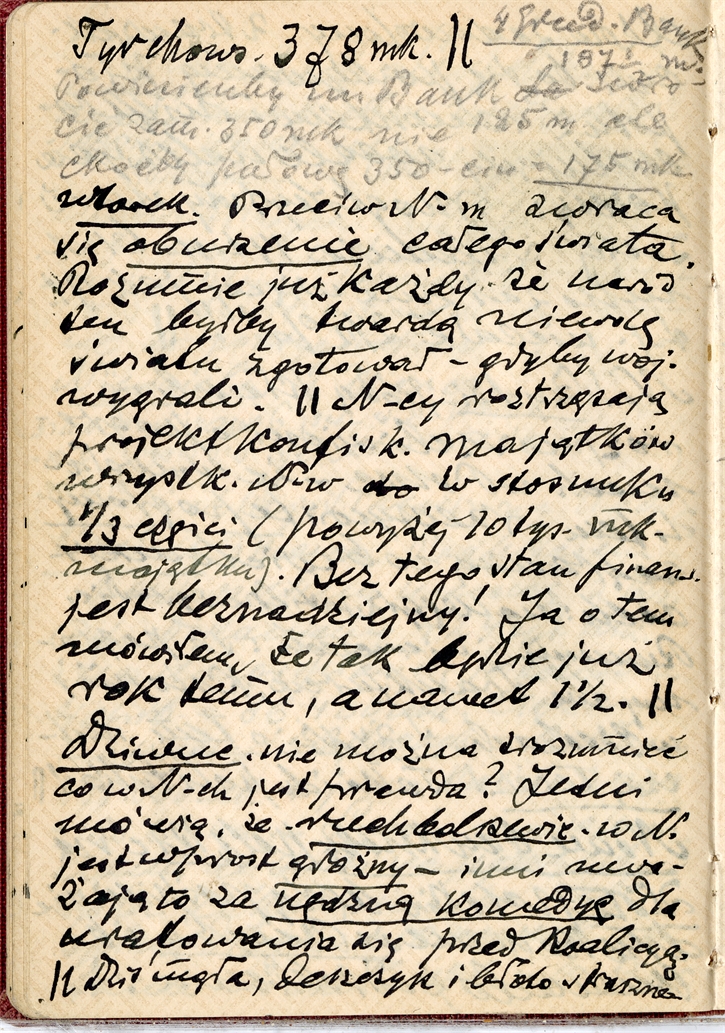 Tyrchows. 378 mk. ||
4 Grud. Bank
187 m.
Powinienby mu Bank zwró-
cić zam. 350 mk nie 185 m ale
choćby połowę 350-ciu = 175 mk
wtorek. Przeciw N-m zwraca
się oburzenie całego świata.
Rozumie już każdy że naród
ten byłby twardą niewolę
światu zgotował – gdyby woj.
wygrali. || N-cy roztrząsają
projekt konfisk. majątków
wszystk. N-w do w stosunku
1/3 części (powyżej 10 tys. mk.
majątku). Bez tego stan finans.
jest beznadziejny! Ja o tem
mówiłem, że tak będzie już
rok temu, a nawet 1½. ||
Dziwne. nie można zrozumieć
co w N-ch jest prawdą? Jedni
mówią, że ruch bolszewic. w N.
jest wprost groźny – inni uwa-
żają to za nędzną komedyę dla
uratowania się przed Koalicyą.
|| Dziś mgła, deszczyk i błoto straszne